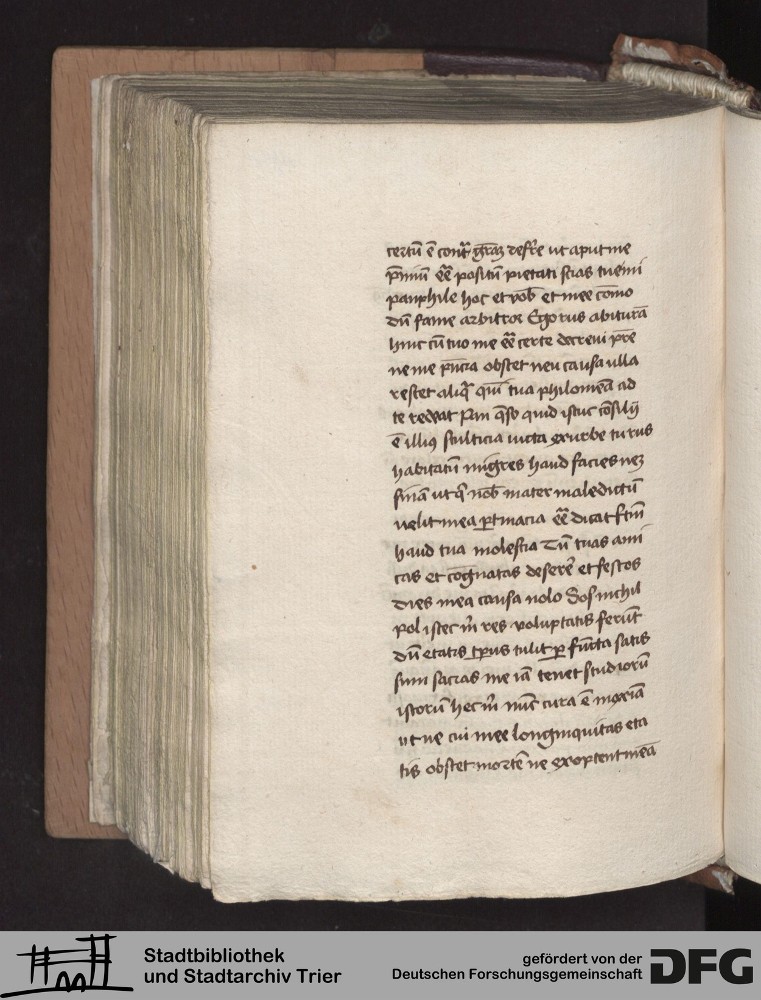 certū ē cont̃ grãz refr̃e ut aput me
p̃miū eē̃ positū pietati scias tuēmi
panphile hoc et vob̃ et mee cōmo
dū fame arbitror Ego rus abiturā
hinc cū tuo me eē̃ certe decrevi p̃re
ne me p̃ncia obstet neu causa ulla
restet aliq̃ quī tua philomēa ad
te redeat Pan q̃so quid istuc cōsilij
ē illiꝰ stulticia victa ex urbe tu rus
habitatū migres haud facies neqꝫ
sinā ut q̃ nob̃ mater maledictū
velit mea ꝑtinacia eē̃ dicat fc̃m
haud tua molestia Tū tuas ami
cas et cōgnatas deserẽ et festos
dies mea causa nolo Sos nichil
pol istec m̃ res voluptatis ferūt
dū etatis tp̃us tulit ꝑfūcta satis
sum sacias me iā tenet studiorū
istorū hec m̃ nūc cura ē maxiā
ut ne cui mee longinquitas eta
tis obstet mortē ne exoptent meā
Stadtbibliothek
und Stadtarchiv Trier
gefördert von der
Deutschen Forschungsgemeinschaft
DFG